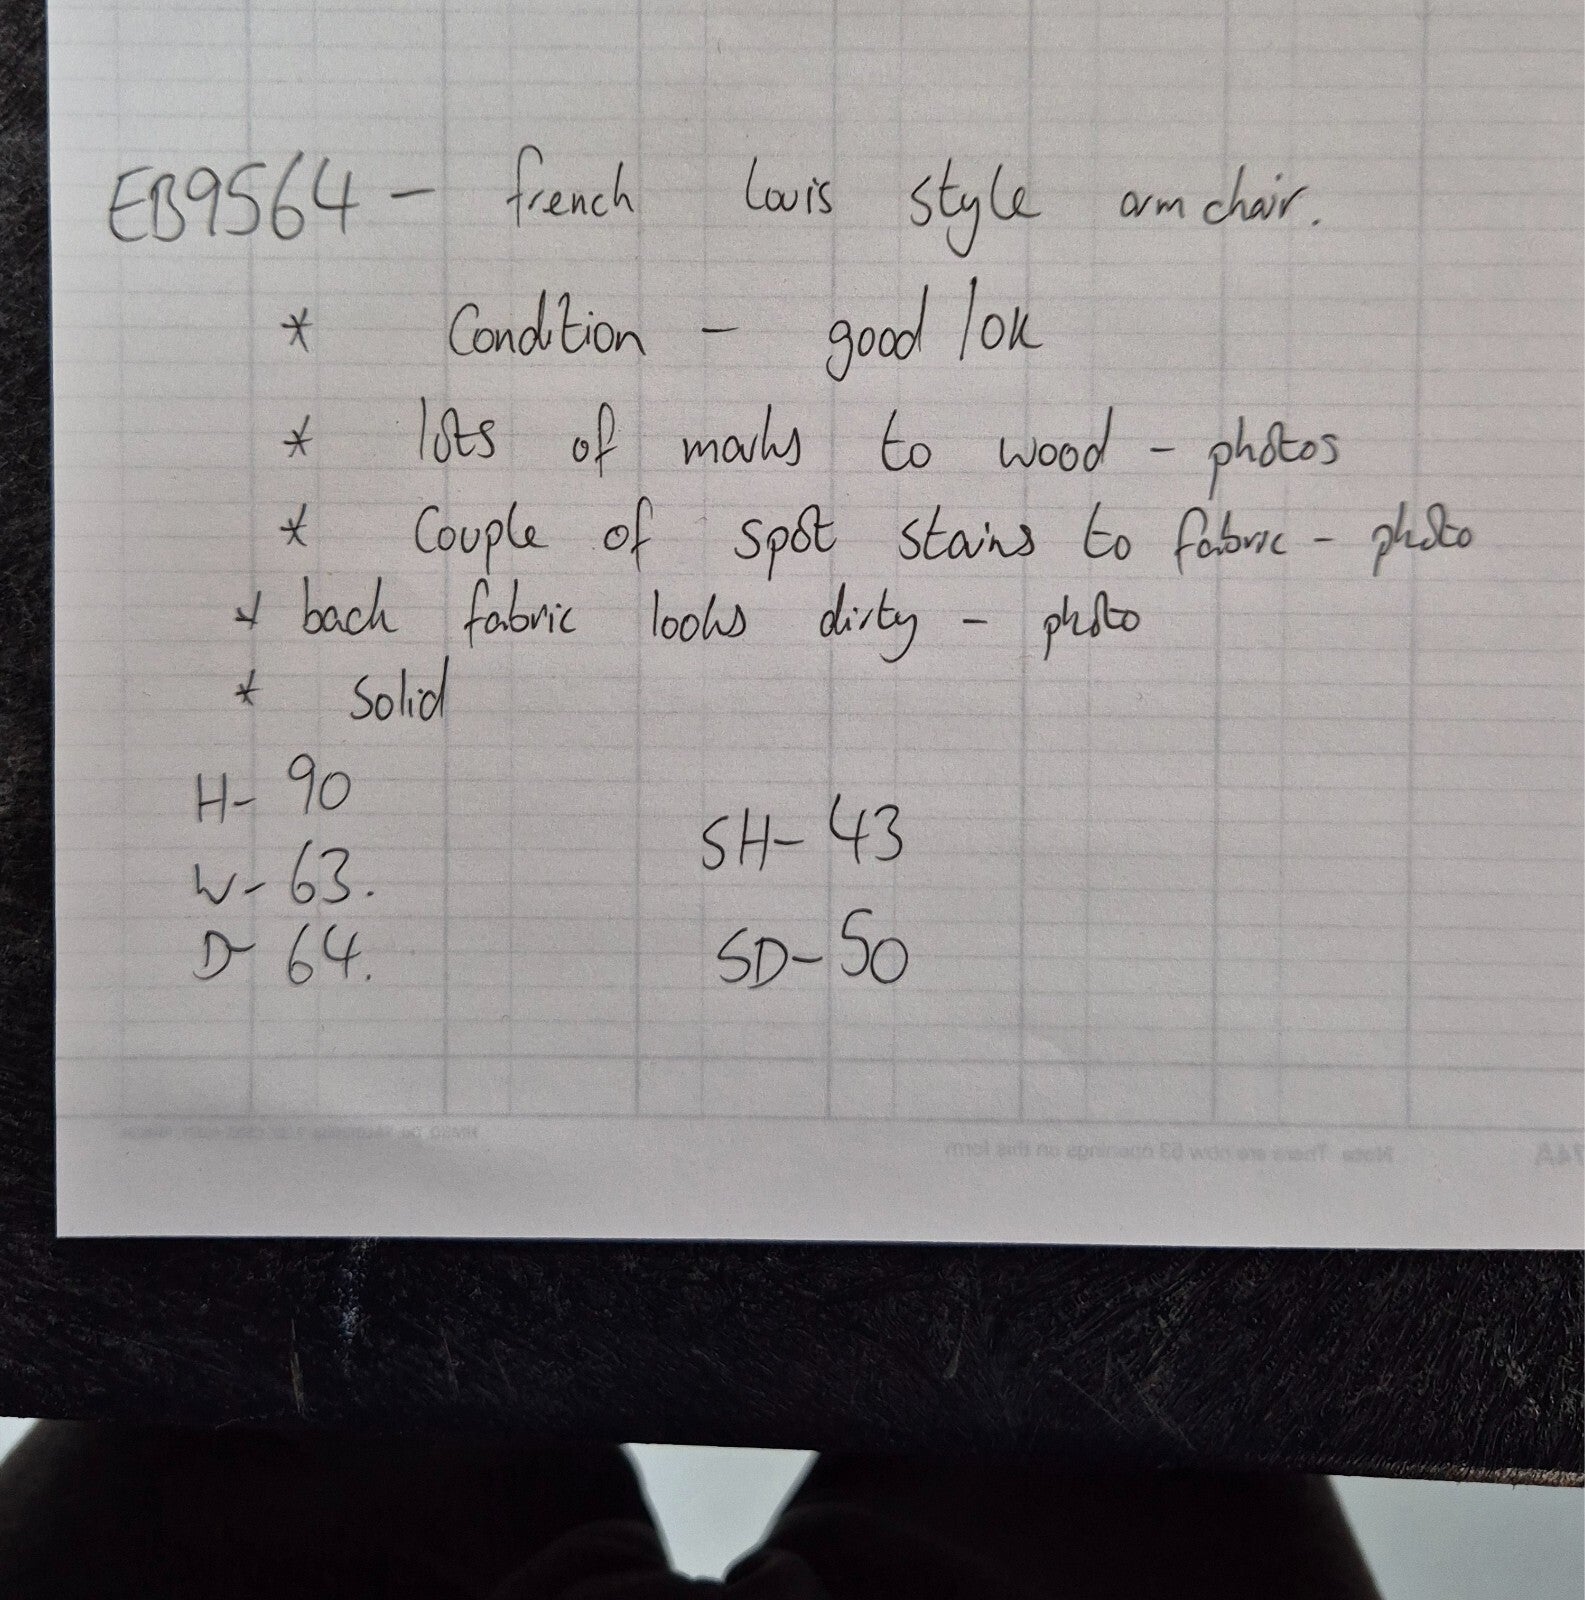 EB9564 - french louis style armchair.
* Condition - good / ok
* lots of marks to wood - photos
* Couple of spot stains to fabric - photo
* back fabric looks dirty - photo
* Solid
H- 90
W- 63.
D- 64.
SH- 43
SD- 50
Note: There are now 63 openings on this form